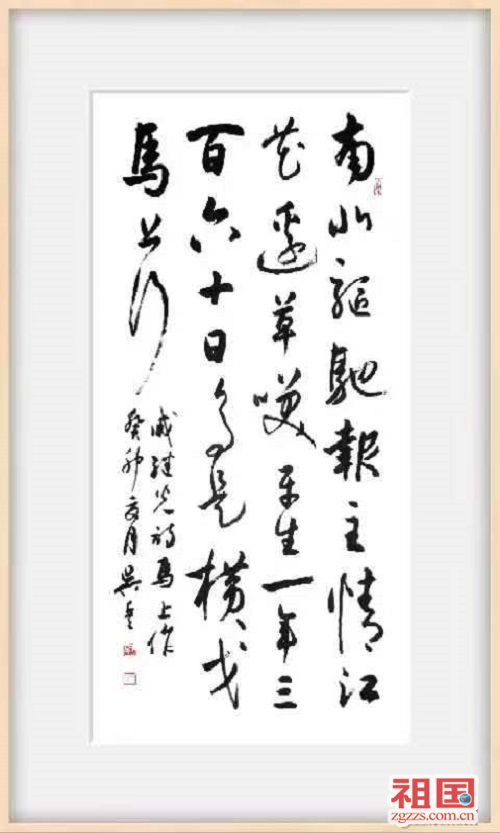 南北驅馳報主情江
花邊草咲平生一年三
百六十日多是横戈
馬上行
戚继光诗馬上作
癸卯夏月吴
祖国
zgzzs.com.cn